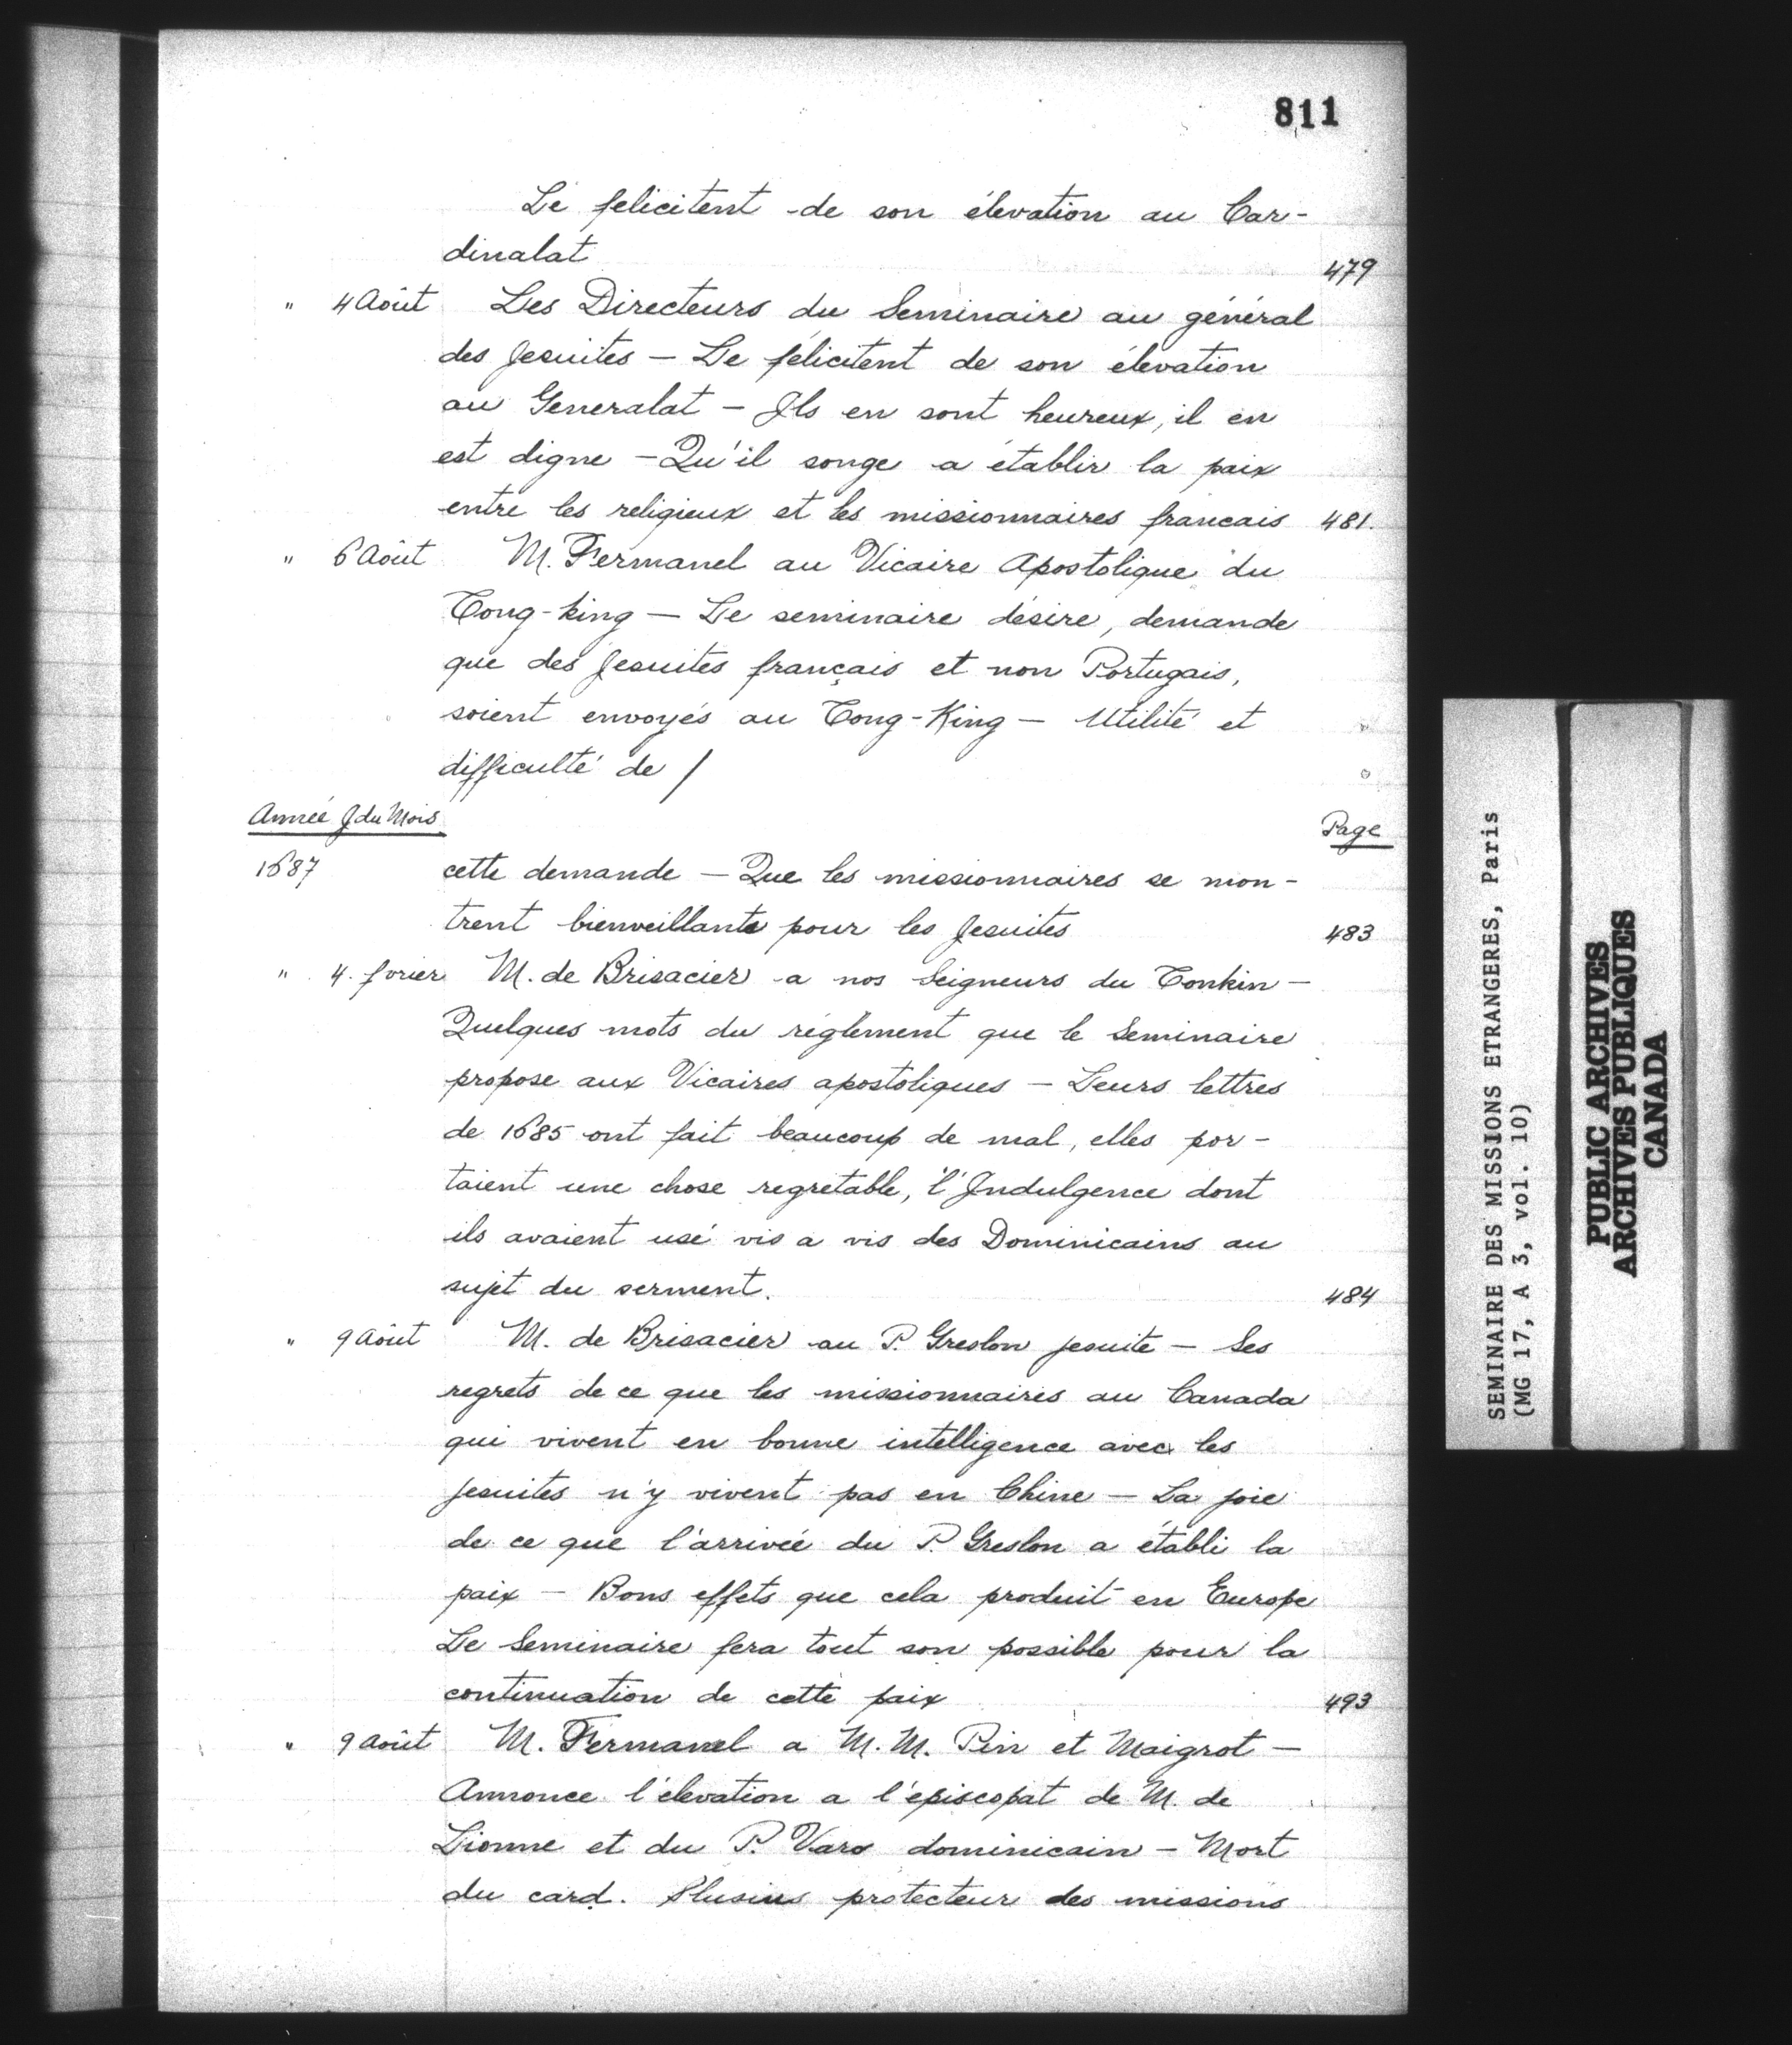 811
Le felicitent de son élevation au Car-
dinalat 479
" 4 Août Les Directeurs du Seminaire au général
des Jesuites — Le félicitent de son élevation
au Generalat — Ils en sont heureux, il en
est digne — Qu'il songe a établir la paix
entre les religieux et les missionnaires francais 481.
" 6 Août M. Fermanel au Vicaire Apostolique du
Tong-king — Le seminaire désire, demande
que des Jesuites français et non Portugais,
soient envoyés au Tong-King — Utilité et
difficulté de /
Année J du Mois Page
1687 cette demande — Que les missionnaires se mon-
trent bienveillants pour les Jesuites 483
" 4. fvrier M. de Brisacier a nos Seigneurs du Tonkin —
Quelques mots du réglement que le Seminaire
propose aux Vicaires apostoliques — Leurs lettres
de 1685 ont fait beaucoup de mal, elles por-
taient une chose regretable, l'Indulgence dont
ils avaient usé vis a vis des Dominicains au
sujet du serment. 484
" 9 Août M. de Brisacier au P. Greslon jesuite — Ses
regrets de ce que les missionnaires au Canada
qui vivent en bonne intelligence avec les
jesuites n'y vivent pas en Chine — Sa joie
de ce que l'arrivée du P. Greslon a établi la
paix — Bons effets que cela produit en Europe
Le Seminaire fera tout son possible pour la
continuation de cette paix 493
" 9 Août M. Fermanel a M.M. Pin et Maigrot —
Annonce l'élevation a l'épiscopat de M. de
Lionne et du P. Varo dominicain — Mort
du card. Slusius protecteur des missions
SEMINAIRE DES MISSIONS ETRANGERES, Paris
(MG 17, A 3, vol. 10)
PUBLIC ARCHIVES
ARCHIVES PUBLIQUES
CANADA